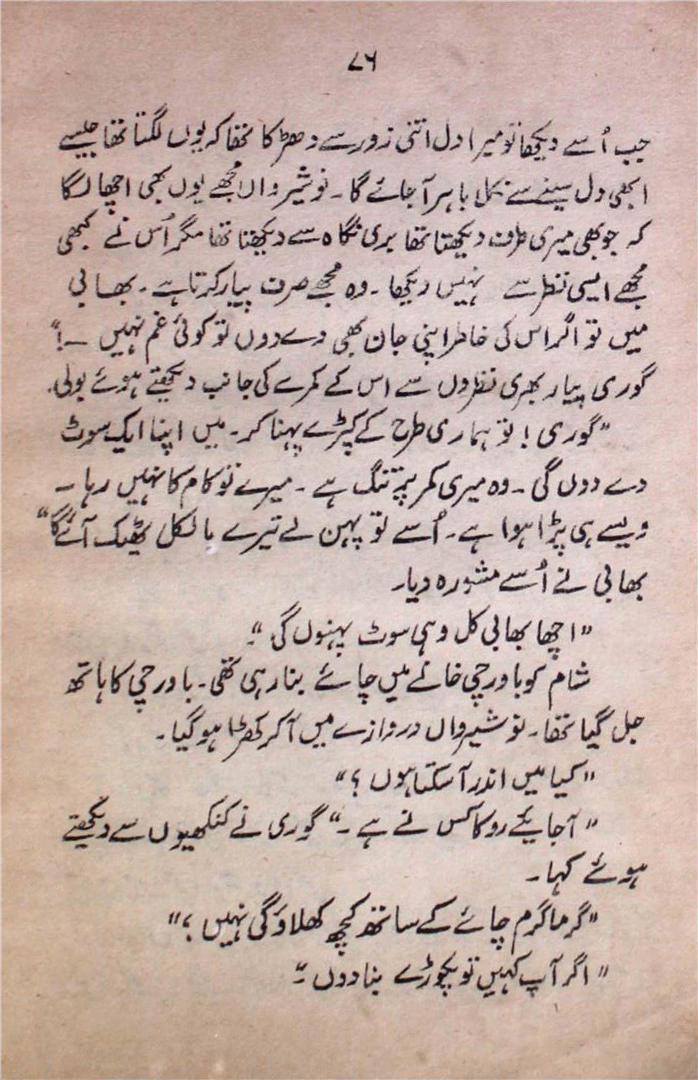 ۷۶
جب اُسے دیکھا تو میرا دل اتنی زور سے دھڑکا تھا کہ یوں لگتا تھا جیسے
ابھی دل سینے سے نکل باہر آ جائے گا۔ نوشیرواں مجھے یوں بھی اچھا لگا
کہ جو بھی میری طرف دیکھتا تھا بری نگاہ سے دیکھتا تھا مگر اُس نے کبھی
مجھے ایسی نظر سے نہیں دیکھا۔ وہ مجھے صرف پیار کرتا ہے۔ بھابی
میں تو اگر اس کی خاطر اپنی جان بھی دے دوں تو کوئی غم نہیں ۔!"
گوری پیار بھری نظروں سے اس کے کمرے کی جانب دیکھتے ہوئے بولی۔
"گوری! تو ہماری طرح کے کپڑے پہنا کر۔ میں اپنا ایک سوٹ
دے دوں گی۔ وہ میری کمر پہ تنگ ہے۔ میرے تو کام کا نہیں رہا۔
ویسے ہی پڑا ہوا ہے۔ اُسے تو پہن لے تیرے بالکل ٹھیک آئے گا"
بھابی نے اُسے مشورہ دیا۔
"اچھا بھابی کل وہی سوٹ پہنوں گی"۔
شام کو باورچی خانے میں چائے بنا رہی تھی۔ باورچی کا ہاتھ
جل گیا تھا۔ نوشیرواں دروازے میں آ کر کھڑا ہو گیا۔
"کیا میں اندر آ سکتا ہوں؟"
"آجائیے روکا کس نے ہے۔" گوری نے کنکھیوں سے دیکھتے
ہوئے کہا۔
"گرما گرم چائے کے ساتھ کچھ کھلاؤ گی نہیں؟"
"اگر آپ کہیں تو پکوڑے بنا دوں"۔